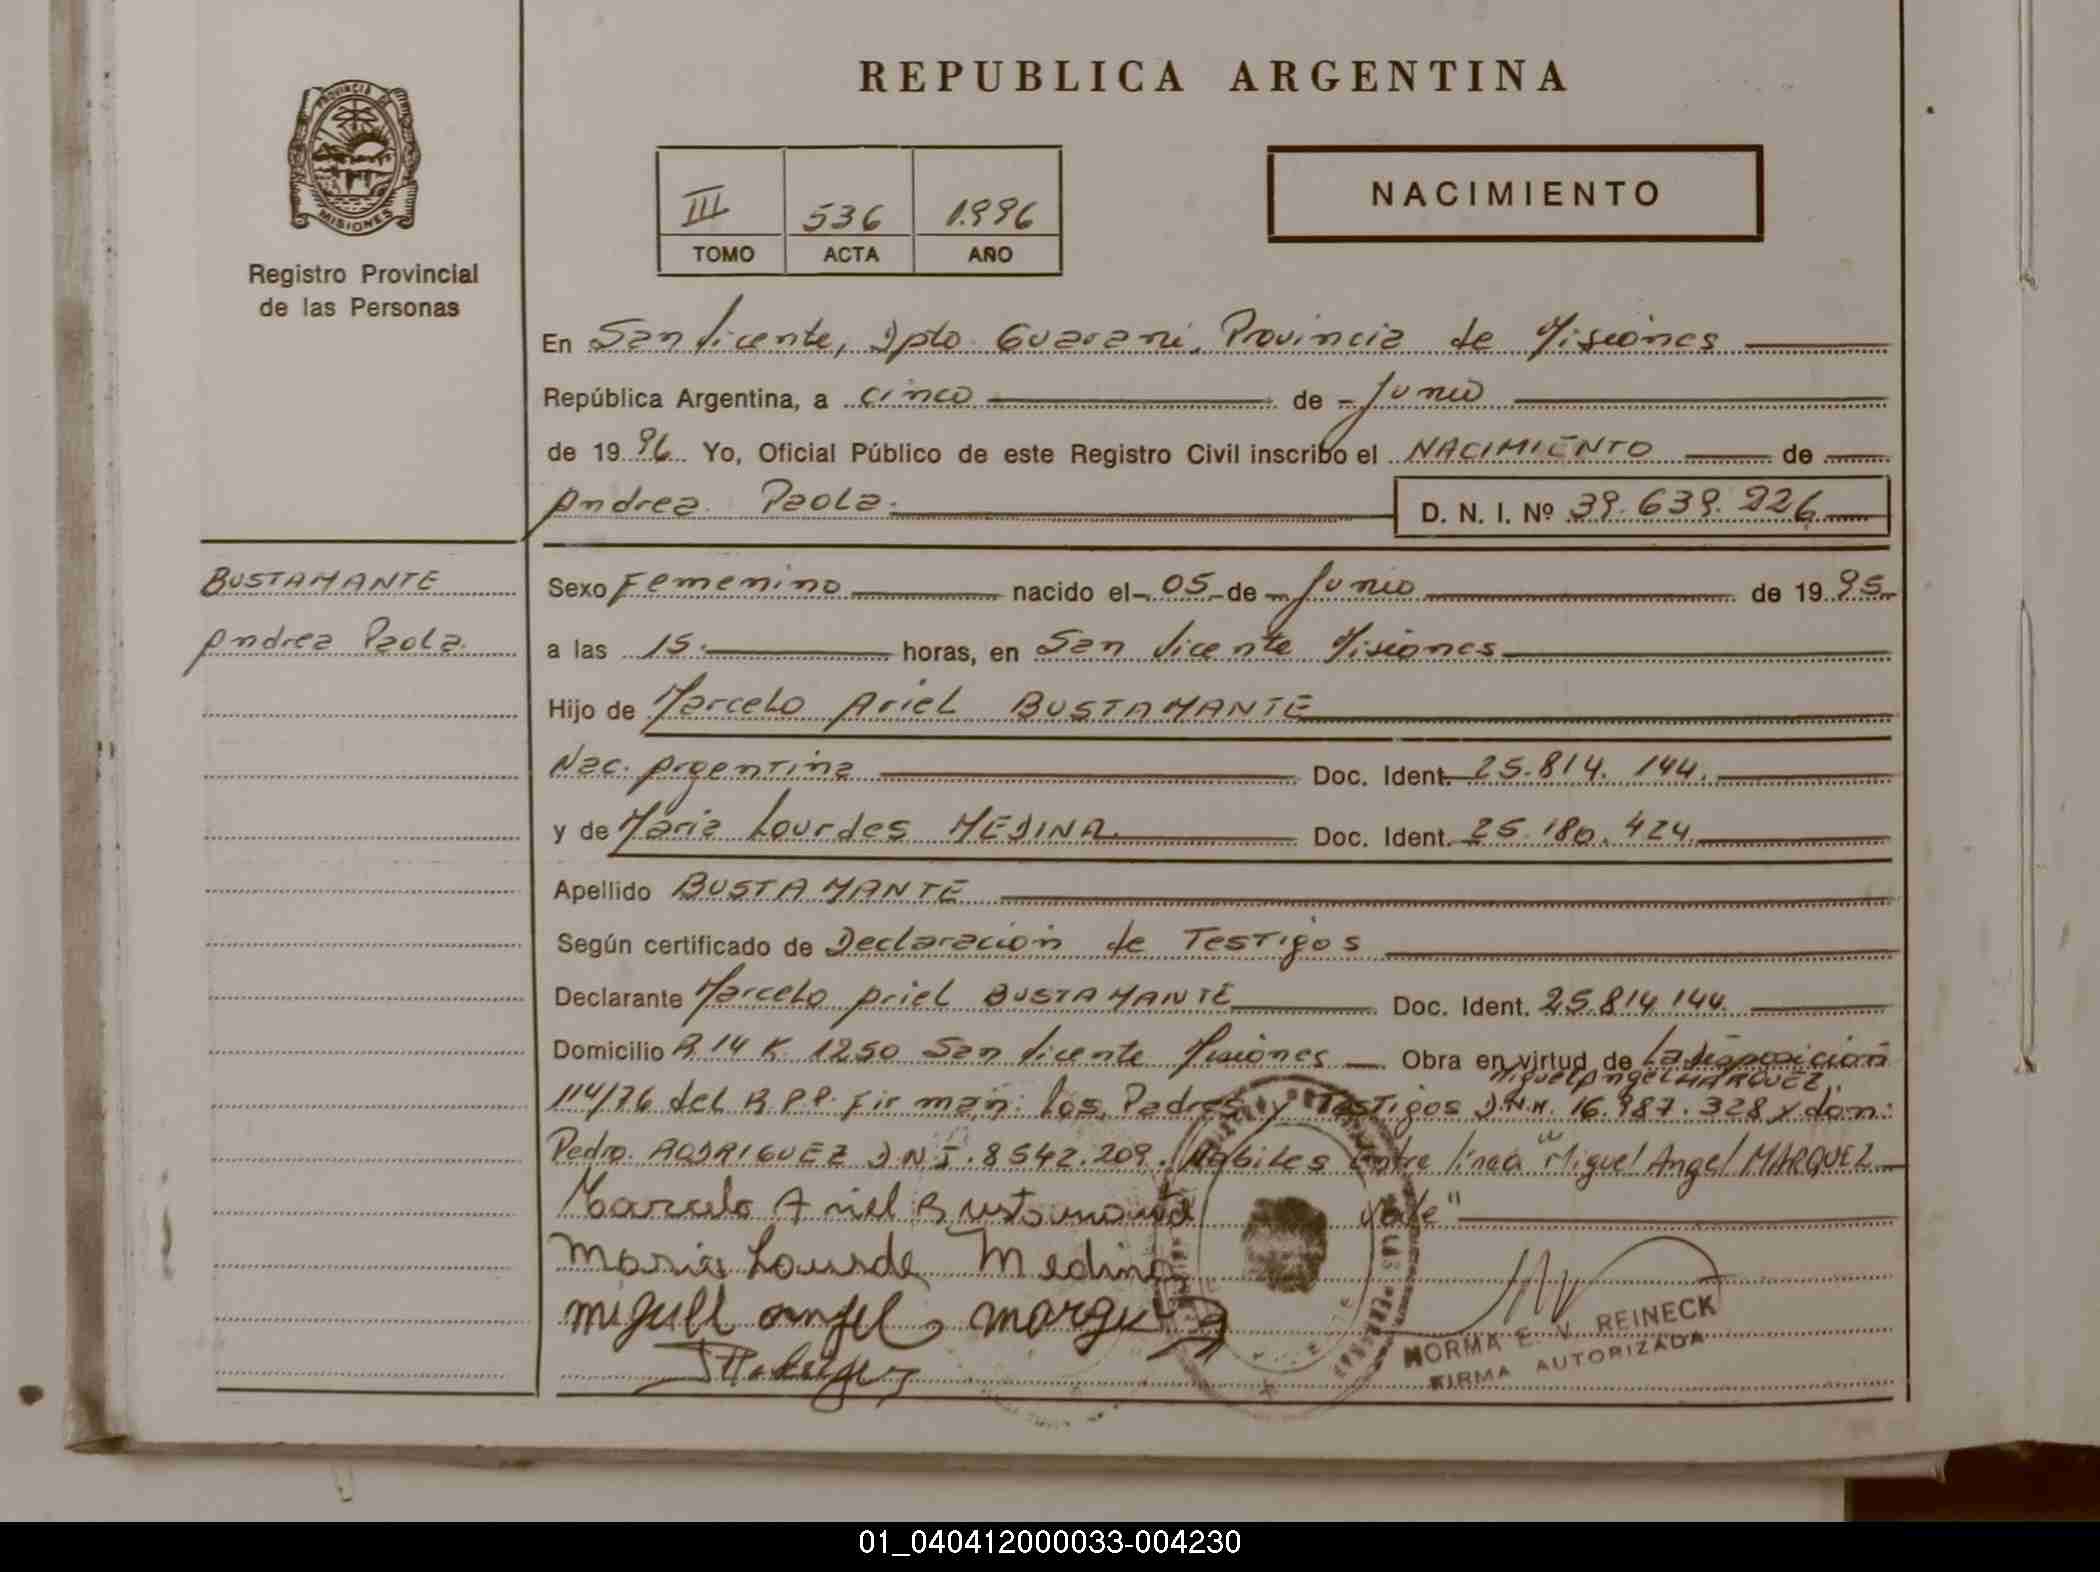 REPUBLICA ARGENTINA
PROVINCIA DE
MISIONES
Registro Provincial
de las Personas
III 536 1.996
TOMO ACTA AÑO
NACIMIENTO
En San Vicente, Dpto. Guaraní, Provincia de Misiones
República Argentina, a cinco de Junio
de 1996 Yo, Oficial Público de este Registro Civil inscribo el NACIMIENTO de
Andrea Paola. D. N. I. Nº 39.639.226
BUSTAMANTE
Andrea Paola.
Sexo Femenino nacido el 05 de Junio de 1995
a las 15. horas, en San Vicente Misiones
Hijo de Marcelo Ariel BUSTAMANTE
Nac. Argentina Doc. Ident. 25.814.144.
y de Maria Lourdes MEDINA. Doc. Ident. 25.180.424.
Apellido BUSTAMANTE
Según certificado de Declaración de Testigos
Declarante Marcelo Ariel BUSTAMANTE Doc. Ident. 25.814.144.
Domicilio R 14 K. 1250 San Vicente Misiones Obra en virtud de La disposición
Miguel Angel MARQUEZ.
114/76 del R.P.P. Firman: los Padres y Testigos D.N.N. 16.987.328 y don:
Pedro. RODRIGUEZ D.N.I. 8542.209. Habiles entre línea "Miguel Angel MARQUEZ
vale"
Marcelo Ariel Bustamante
Maria Lourde Medina
miguel angel marquez
NORMA E. V. REINECK
FIRMA AUTORIZADA
01_040412000033-004230